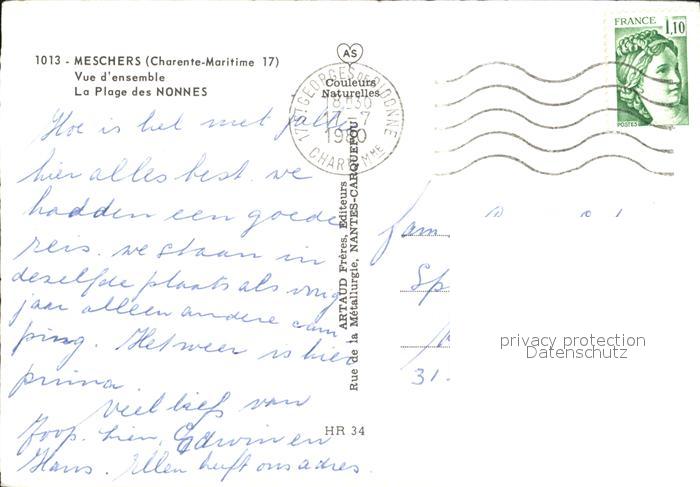 1013 - MESCHERS (Charente-Maritime 17)
Vue d'ensemble
La Plage des NONNES
AS
Couleurs
Naturelles
17 ST GEORGES DE DIDONNE
18H30
7
1980
CHARTE MME
FRANCE
1,10
POSTES
Hoe is het met jullie
hier alles best. we
hadden een goede
reis. we staan in
dezelfde plaats als vorig
jaar alleen andere cam
ping. Het weer is hier
prima.
Veel liefs van
Joop. Lien, Edwin en
Hans. Ellen heeft ons adres.
ARTAUD Frères, Editeurs
Rue de la Métallurgie, NANTES-CARQUEFOU
HR 34
fam.
Sp
31.
privacy protection
Datenschutz